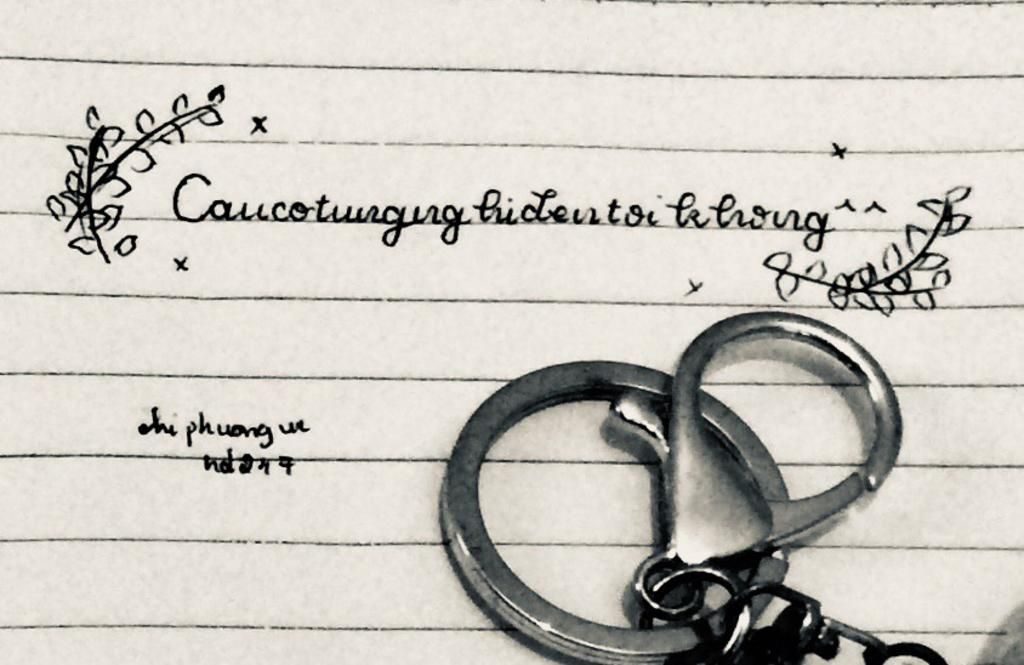 Caucotungnghidentoikhong^^
chi phuong ur